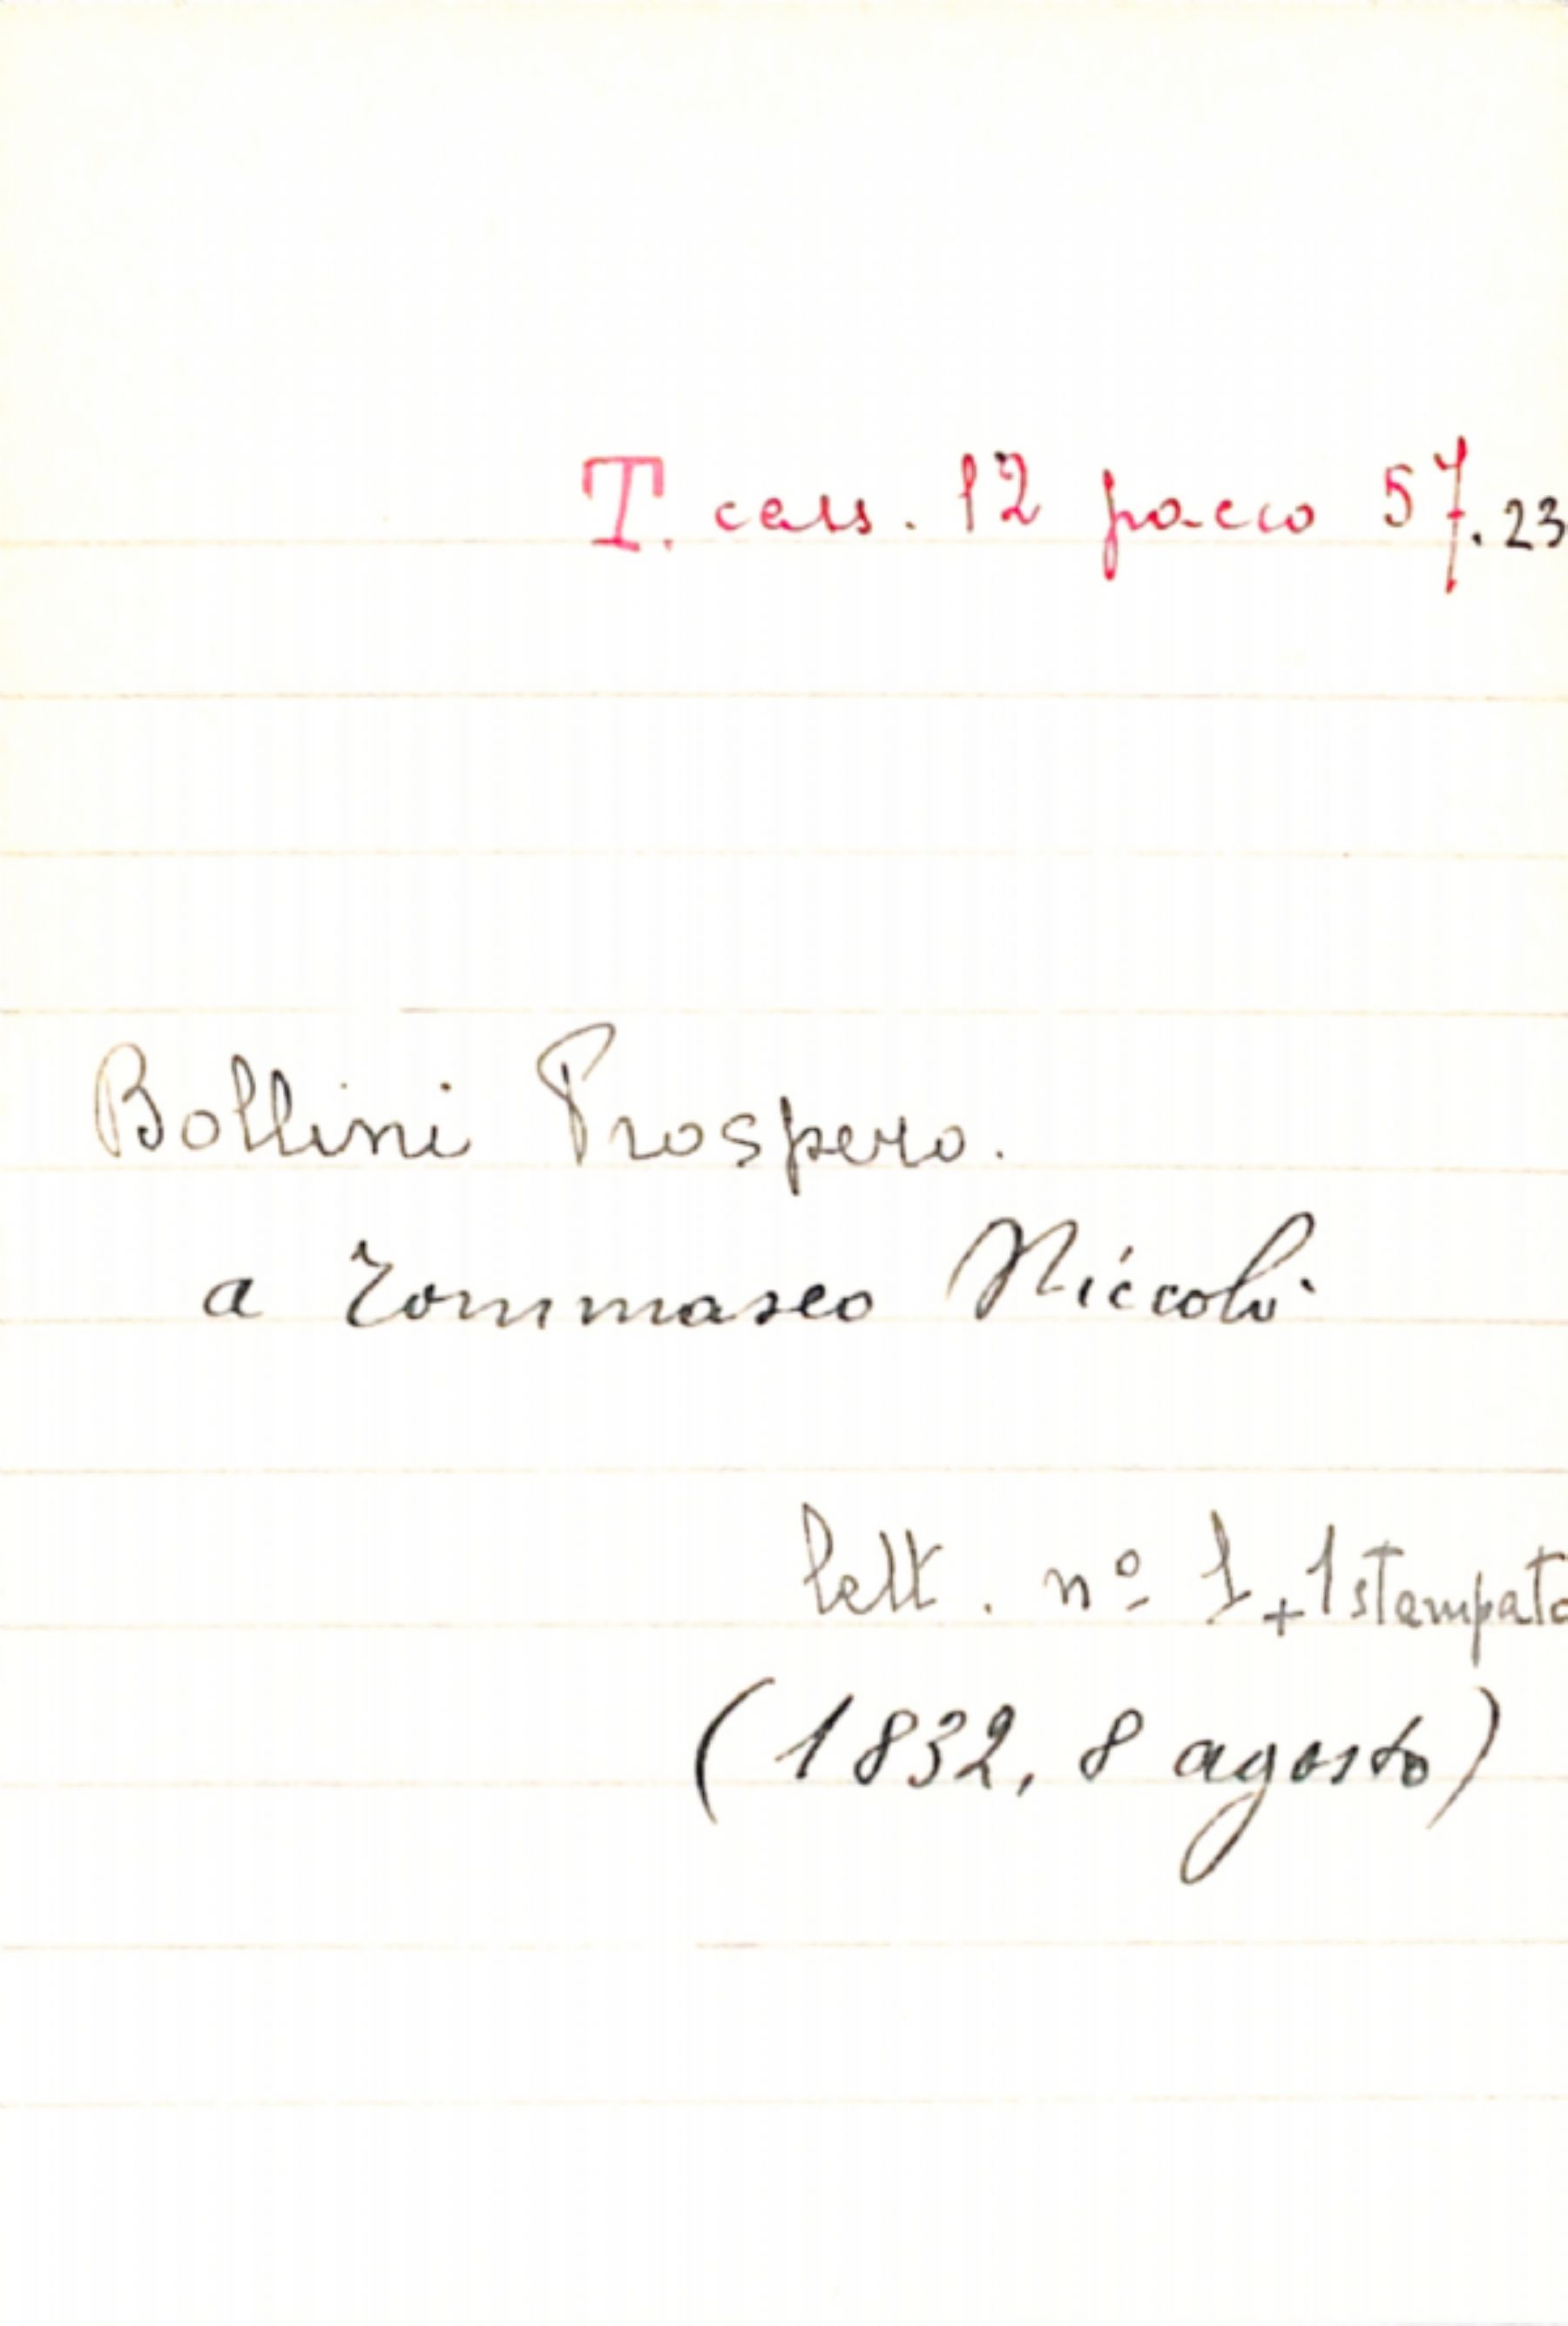 T. cass. 12 pacco 57.23
Bollini Prospero.
a Tommaseo Niccolò
lett. nº 1 + 1 stampato
(1832, 8 agosto)